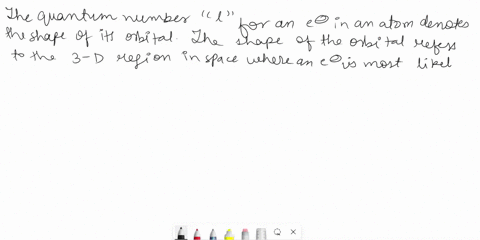 The quantum number "l" for an e⊖ in an atom denotes
the shape of its orbital. The shape of the orbital refers
to the 3-D region in space where an e⊖ is most likel